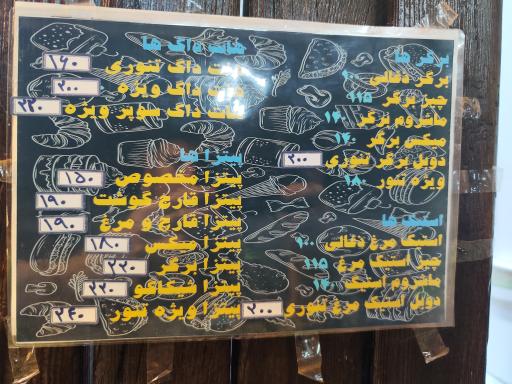 برگر ها
برگر ذغالی ۹۰
چیز برگر ۱۱۵
ماشروم برگر ۱۴۰
میکس برگر ۱۴۰
دوبل برگر تنوری ۲۰۰
ویژه تنور ۱۸۰
استیک ها
استیک مرغ ذغالی
چیز استیک مرغ ۱۱۵
ماشروم استیک ۱۴۰
دوبل استیک مرغ تنوری ۲۰۰
هات داگ ها
هات داگ تنوری ۱۶۰
هات داگ ویژه ۲۰۰
هات داگ سوپر ویژه ۲۳۰
پیتزا ها
پیتزا مخصوص ۱۵۰
پیتزا قارچ گوشت ۱۹۰
پیتزا قارچ و مرغ ۱۹۰
پیتزا میکس ۱۸۰
پیتزا برگر ۲۲۰
پیتزا شیکاگو ۲۲۰
پیتزا ویژه تنور ۲۴۰